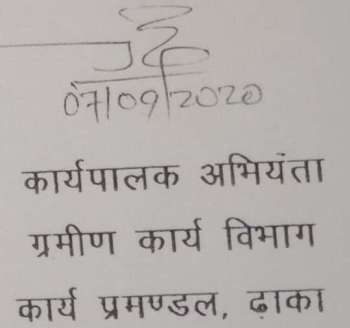 07/09/2020
कार्यपालक अभियंता
ग्रमीण कार्य विभाग
कार्य प्रमण्डल, ढाका